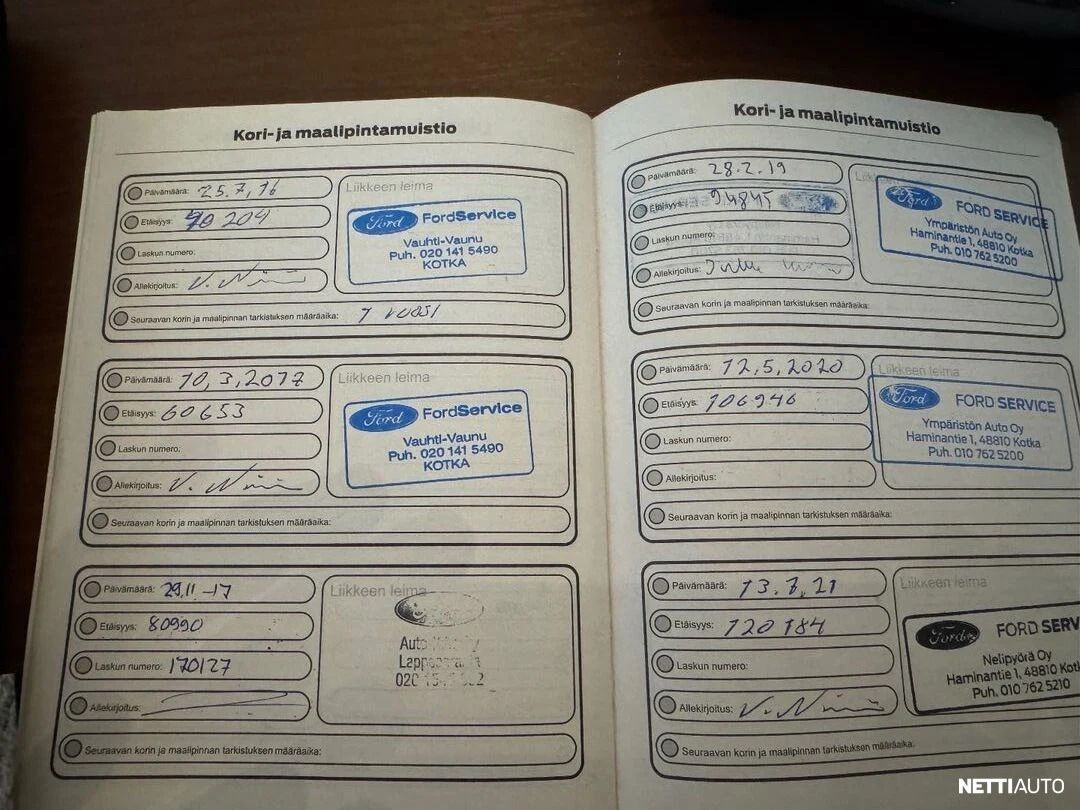 Kori- ja maalipintamuistio
Päivämäärä: 25.7.16
Etäisyys: 40 204
Laskun numero:
Allekirjoitus: V. Ni
Seuraavan korin ja maalipinnan tarkistuksen määräaika:
Liikkeen leima
Ford FordService
Vauhti-Vaunu
Puh. 020 141 5490
KOTKA
Päivämäärä: 10.3.2017
Etäisyys: 60653
Laskun numero:
Allekirjoitus:
Seuraavan korin ja maalipinnan tarkistuksen määräaika:
Liikkeen leima
Ford FordService
Vauhti-Vaunu
Puh. 020 141 5490
KOTKA
Päivämäärä: 29.11-17
Etäisyys: 80990
Laskun numero: 170127
Allekirjoitus:
Seuraavan korin ja maalipinnan tarkistuksen määräaika:
Liikkeen leima
Kori- ja maalipintamuistio
Päivämäärä: 28.2.19
Etäisyys: 94845
Laskun numero:
Allekirjoitus:
Seuraavan korin ja maalipinnan tarkistuksen määräaika:
Ford FORD SERVICE
Ympäristön Auto Oy
Haminantie 1, 48810 Kotka
Puh. 010 762 5200
Päivämäärä: 12.5.2020
Etäisyys: 106946
Laskun numero:
Allekirjoitus:
Seuraavan korin ja maalipinnan tarkistuksen määräaika:
Liikkeen leima
Ford FORD SERVICE
Ympäristön Auto Oy
Haminantie 1, 48810 Kotka
Puh. 010 762 5200
Päivämäärä: 13.7.21
Etäisyys: 120184
Laskun numero:
Allekirjoitus:
Seuraavan korin ja maalipinnan tarkistuksen määräaika:
Liikkeen leima
Ford FORD SERV
Nelipyörä Oy
Haminantie 1, 48810 Kotk
Puh. 010 762 5210
NETTIAUTO